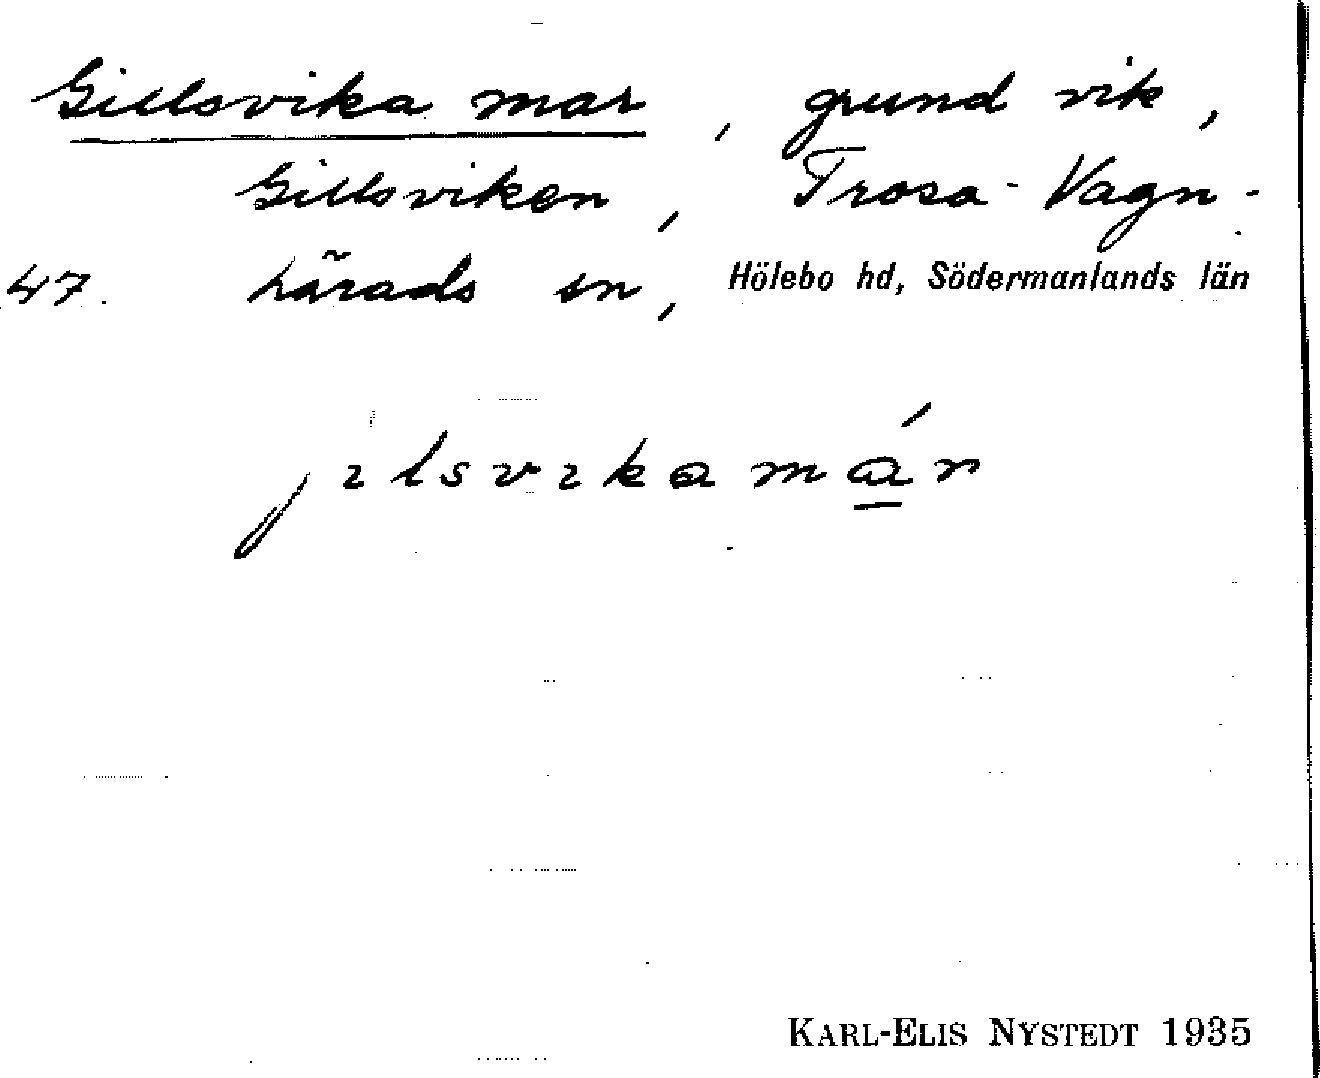 Gillsvika mar, grund vik,
Gillsviken, Trosa-Vagn-
47. härads sn, Hölebo hd, Södermanlands län
jılsvıkamár
KARL-ELIS NYSTEDT 1935